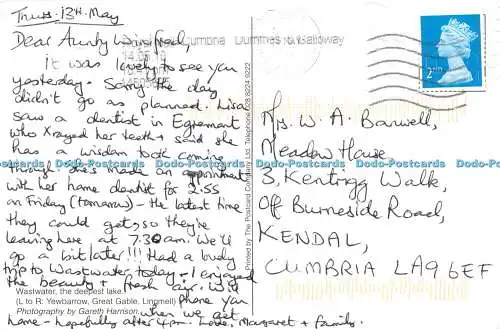 Thurs. 13th May
Dear Aunty Winifred,
It was lovely to see you
yesterday. Sorry the day
didn't go as planned. Lisa
saw a dentist in Egremont
who Xrayed her teeth & said she
has a wisdom tooth coming
through. She's made an appointment
with her home dentist for 2.55
on Friday (tomorrow) - the latest time
they could get, so they're
leaving here at 7.30am. We'll
go a bit later!!! Had a lovely
trip to Wastwater today - I enjoyed
the beauty & fresh air. Will
phone you
when we get
home - hopefully after 4pm. Love, Margaret & family.
Wastwater, the deepest lake.
(L to R: Yewbarrow, Great Gable, Lingmell)
Photography by Gareth Harrison.
Printed by The Postcard Company Ltd. Telephone 028 9224 9222
Cumbria Dumfries & Galloway
2nd
Mrs. W. A. Barwell,
Meadow House
3, Kentrigg Walk,
Off Burneside Road,
KENDAL,
CUMBRIA LA9 6EF
Dodo-Postcards Dodo-Postcards Dodo-Postcards Dodo-Postcards Dodo-Postcards Dodo-Postcards